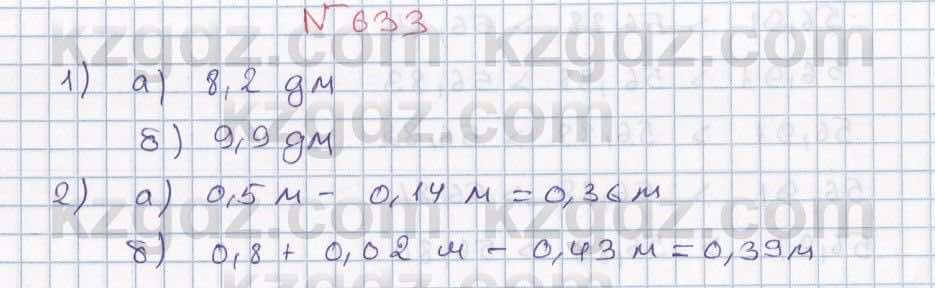 № 633
1) а) 8,2 дм
б) 9,9 дм
2) а) 0,5 м - 0,14 м = 0,36 м
б) 0,8 + 0,02 м - 0,43 м = 0,39 м
kzgdz.com kzgdz.com
kzgdz.com
kzgdz.com kzgdz.com